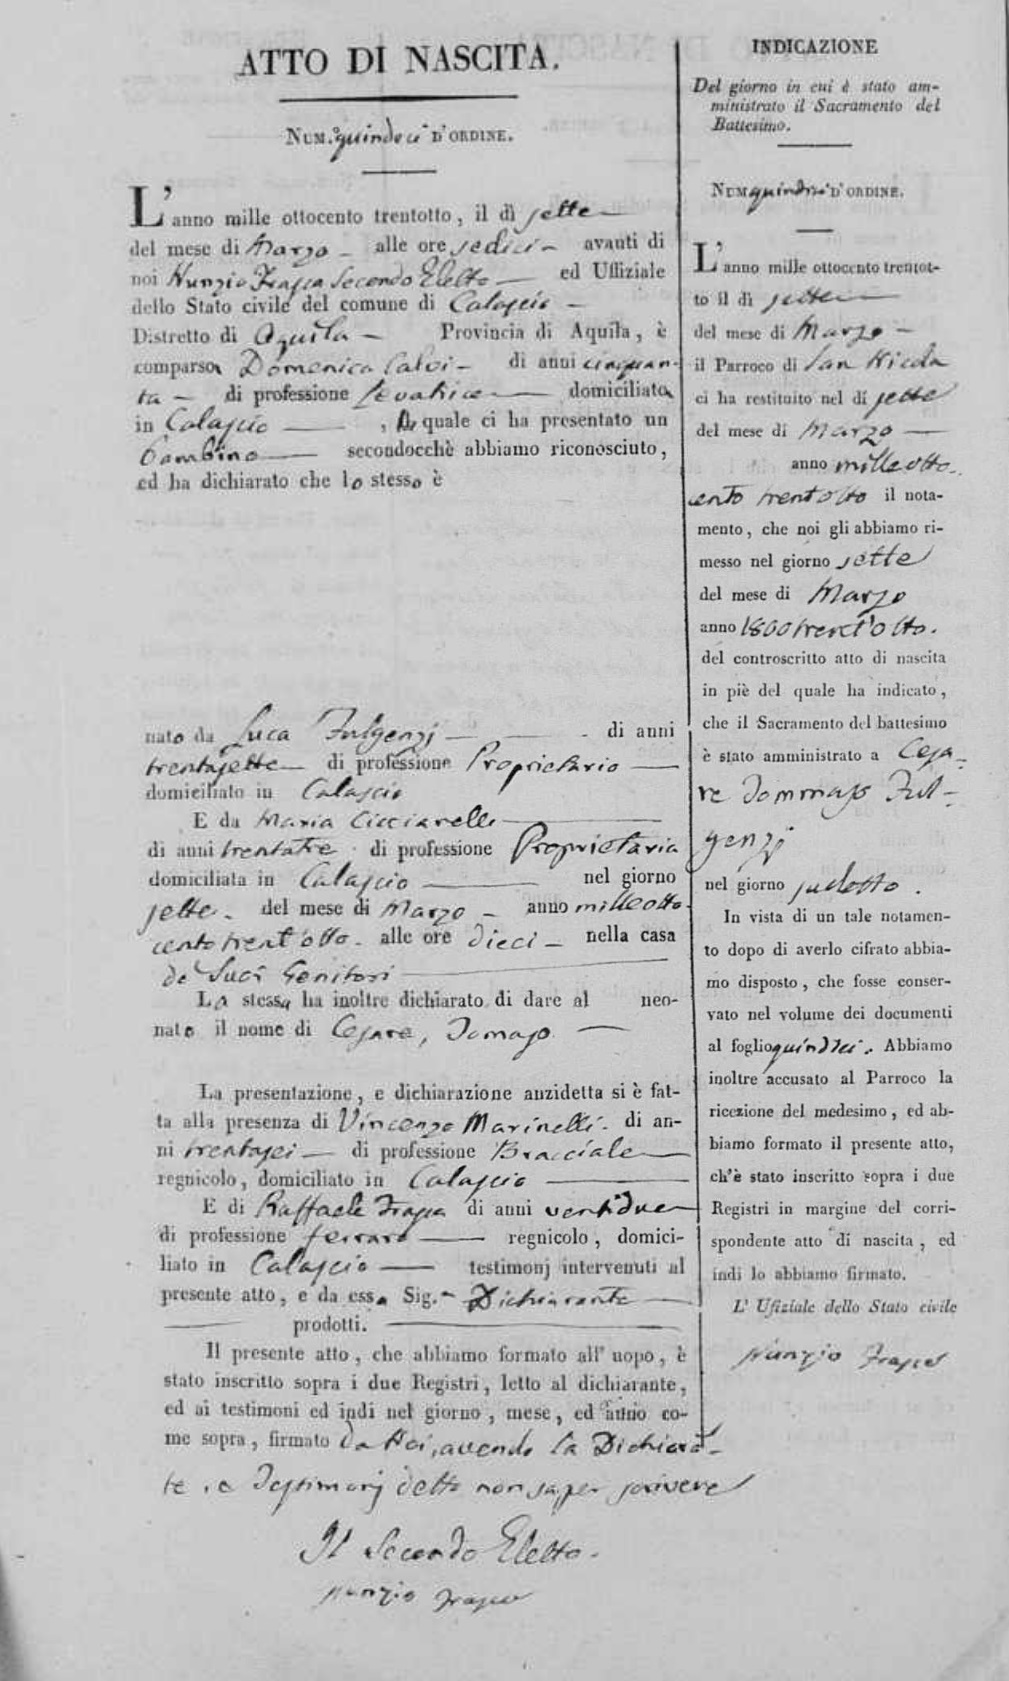 ATTO DI NASCITA.
NUM.° quindeci D'ORDINE.
L'anno mille ottocento trentotto, il dì sette
del mese di Marzo alle ore sedici avanti di
noi Nunzio Frasca Secondo Eletto ed Uffiziale
dello Stato civile del comune di Calascio
Distretto di Aquila Provincia di Aquila, è
comparsa Domenica Calvi di anni cinquan-
ta di professione Levatrice domiciliata
in Calascio, la quale ci ha presentato un
bambino secondocchè abbiamo riconosciuto,
ed ha dichiarato che lo stesso è
nato da Luca Fulgenzj di anni
trentasette di professione Proprietario
domiciliato in Calascio
E da Maria Cicciarelli
di anni trentatre di professione Proprietaria
domiciliata in Calascio nel giorno
sette del mese di Marzo anno milleotto-
cento trent'otto alle ore dieci nella casa
de' Suoi Genitori
La stessa ha inoltre dichiarato di dare al neo-
nato il nome di Cesare, Tomaso
La presentazione, e dichiarazione anzidetta si è fat-
ta alla presenza di Vincenzo Marinelli di an-
ni trentasei di professione Bracciale
regnicolo, domiciliato in Calascio
E di Raffaele Frasca di anni ventidue
di professione ferraro regnicolo, domici-
liato in Calascio testimonj intervenuti al
presente atto, e da essa Sig. Dichiarante
prodotti.
Il presente atto, che abbiamo formato all' uopo, è
stato inscritto sopra i due Registri, letto al dichiarante,
ed ai testimoni ed indi nel giorno, mese, ed anno co-
me sopra, firmato da Noi, avendo la Dichiaran-
te, e Testimonj detto non saper scrivere
Il Secondo Eletto
Nunzio Frasca
INDICAZIONE
Del giorno in cui è stato am-
ministrato il Sacramento del
Battesimo.
NUM. quindici D'ORDINE.
L'anno mille ottocento trentot-
to il dì sette
del mese di Marzo
il Parroco di San Nicola
ci ha restituito nel dì sette
del mese di Marzo
anno milleotto-
cento trent'otto il nota-
mento, che noi gli abbiamo ri-
messo nel giorno sette
del mese di Marzo
anno 1800 trent'otto.
del controscritto atto di nascita
in piè del quale ha indicato,
che il Sacramento del battesimo
è stato amministrato a Cesa-
re Tommaso Ful-
genzj
nel giorno sudetto.
In vista di un tale notamen-
to dopo di averlo cifrato abbia-
mo disposto, che fosse conser-
vato nel volume dei documenti
al foglio quindici. Abbiamo
inoltre accusato al Parroco la
ricezione del medesimo, ed ab-
biamo formato il presente atto,
ch'è stato inscritto sopra i due
Registri in margine del corri-
spondente atto di nascita, ed
indi lo abbiamo firmato.
L' Ufiziale dello Stato civile
Nunzio Frasca